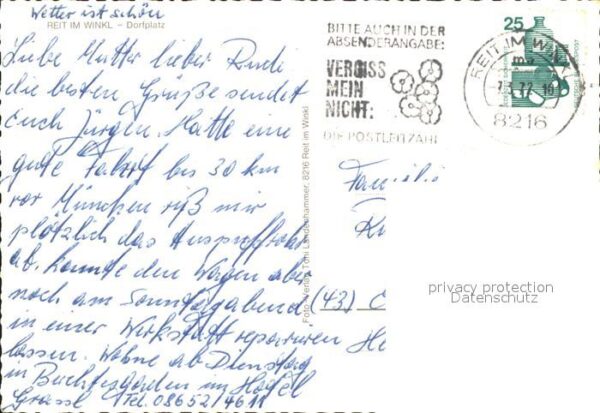 Wetter ist schön
REIT IM WINKL – Dorfplatz
Liebe Mutter lieber Rudi
die besten Grüße sendet
euch Jürgen. Hatte eine
gute Fahrt bis 30 km
vor München riß mir
plötzlich das Auspuffrohr
ab. konnte den Wagen aber
noch am Sonntagabend
in einer Werkstatt reparieren
lassen. Wohne ab Dienstag
in Berchtesgaden im Hotel
Grassl Tel. 08652/4611
Foto-Verlag Toni Lindenhammer, 8216 Reit im Winkl
BITTE AUCH IN DER
ABSENDERANGABE:
VERGISS
MEIN
NICHT:
DIE POSTLEITZAHL
REIT IM WINKL
72
8216
25
Famili
(43)
He
privacy protection
Datenschutz